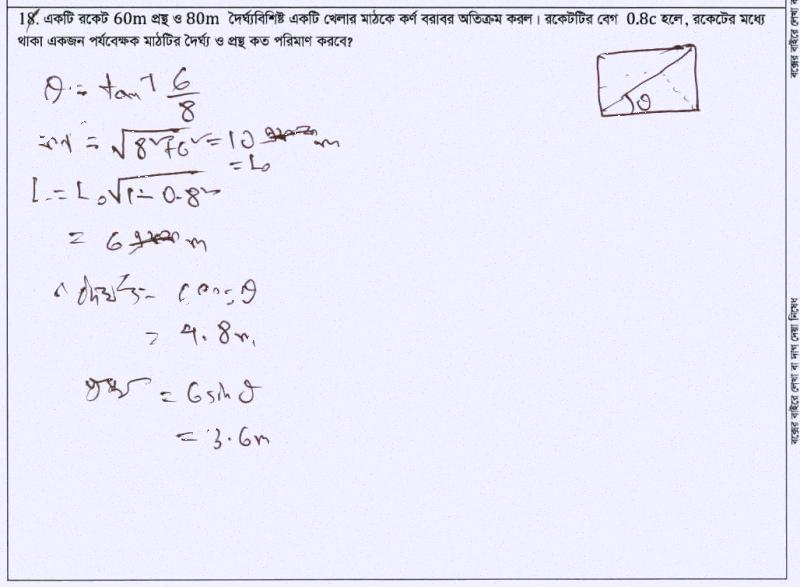 18. একটি রকেট 60m প্রস্থ ও 80m দৈর্ঘ্যবিশিষ্ট একটি খেলার মাঠকে কর্ণ বরাবর অতিক্রম করল। রকেটটির বেগ 0.8c হলে, রকেটের মধ্যে
থাকা একজন পর্যবেক্ষক মাঠটির দৈর্ঘ্য ও প্রস্থ কত পরিমাণ করবে?
θ = tan⁻¹ 6/8
θ
কর্ণ = √8²+6² = 10 m
= L₀
L = L₀√1-0.8²
= 6 m
∴ দৈর্ঘ্য = 6 cos θ
= 4.8m
প্রস্থ = 6 sin θ
= 3.6m
বক্সের বাইরে লেখা বা দাগ দেয়া নিষেধ